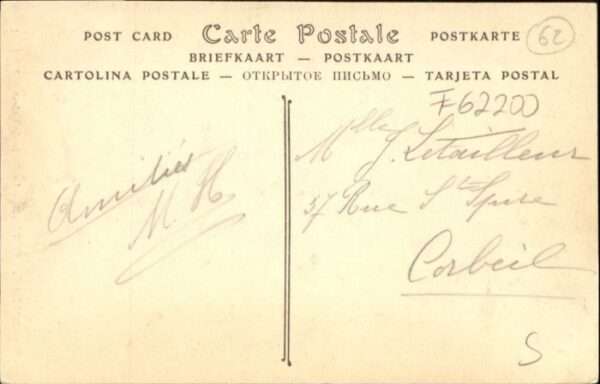 POST CARD Carte Postale POSTKARTE
BRIEFKAART — POSTKAART
CARTOLINA POSTALE — ОТКРЫТОЕ ПИСЬМО — TARJETA POSTAL
62
F62200
Amitiés
M. H
Mlle J. Letailleur
37 Rue St Spire
Corbeil
S